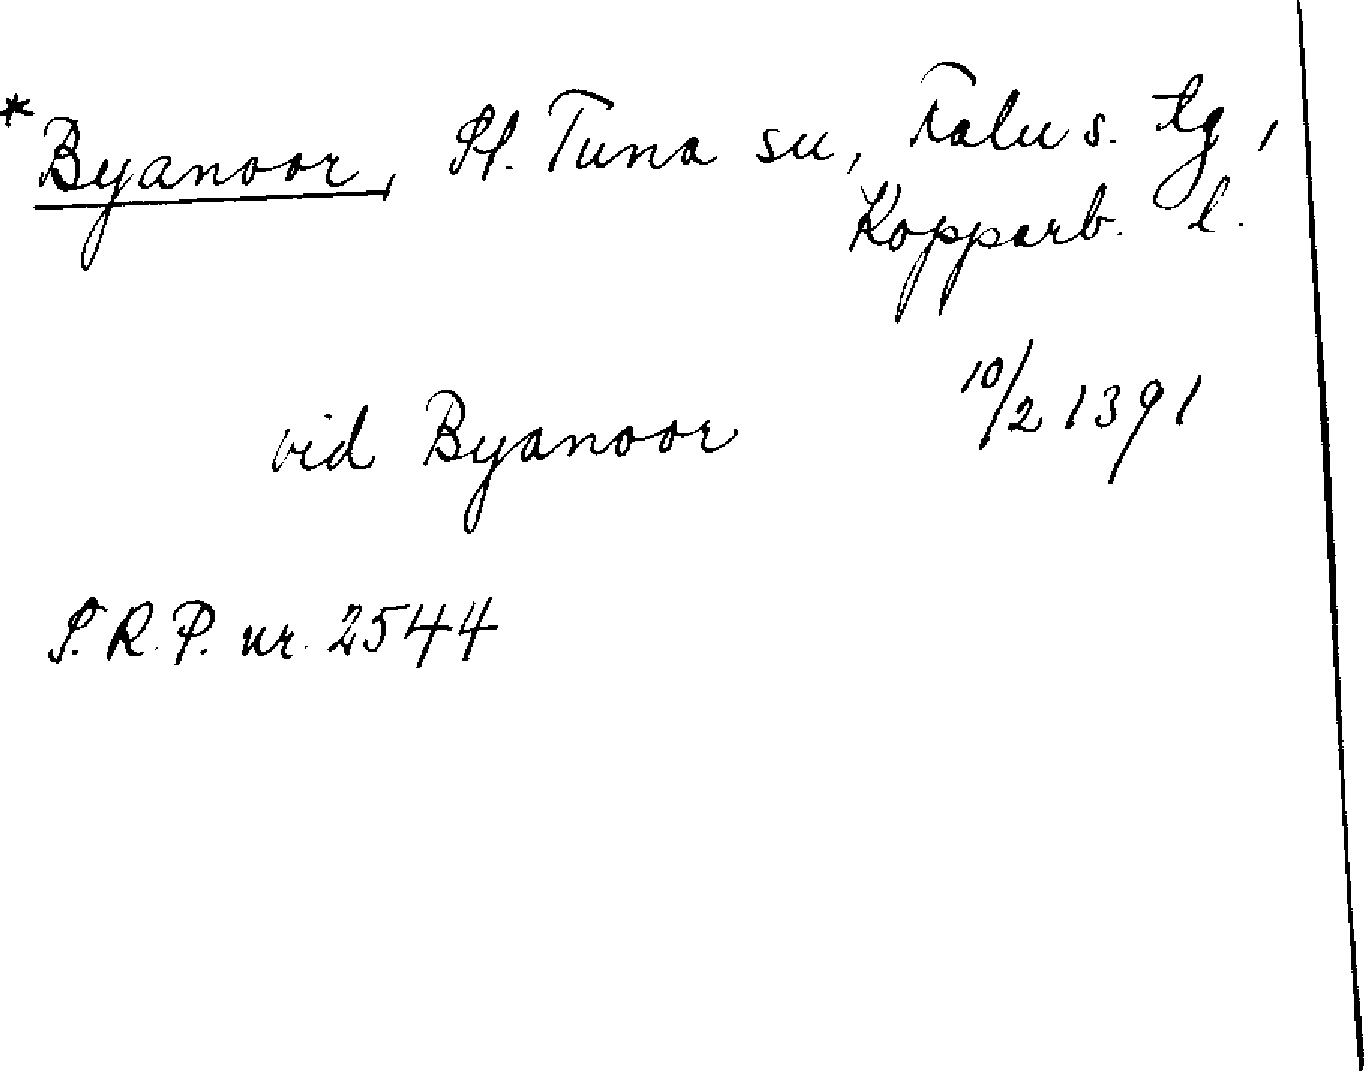 *Byanoor, St. Tuna sn, Falu s. tg,
Kopparb. l.
vid Byanoor 10/2 1391
S.R.P. nr. 2544